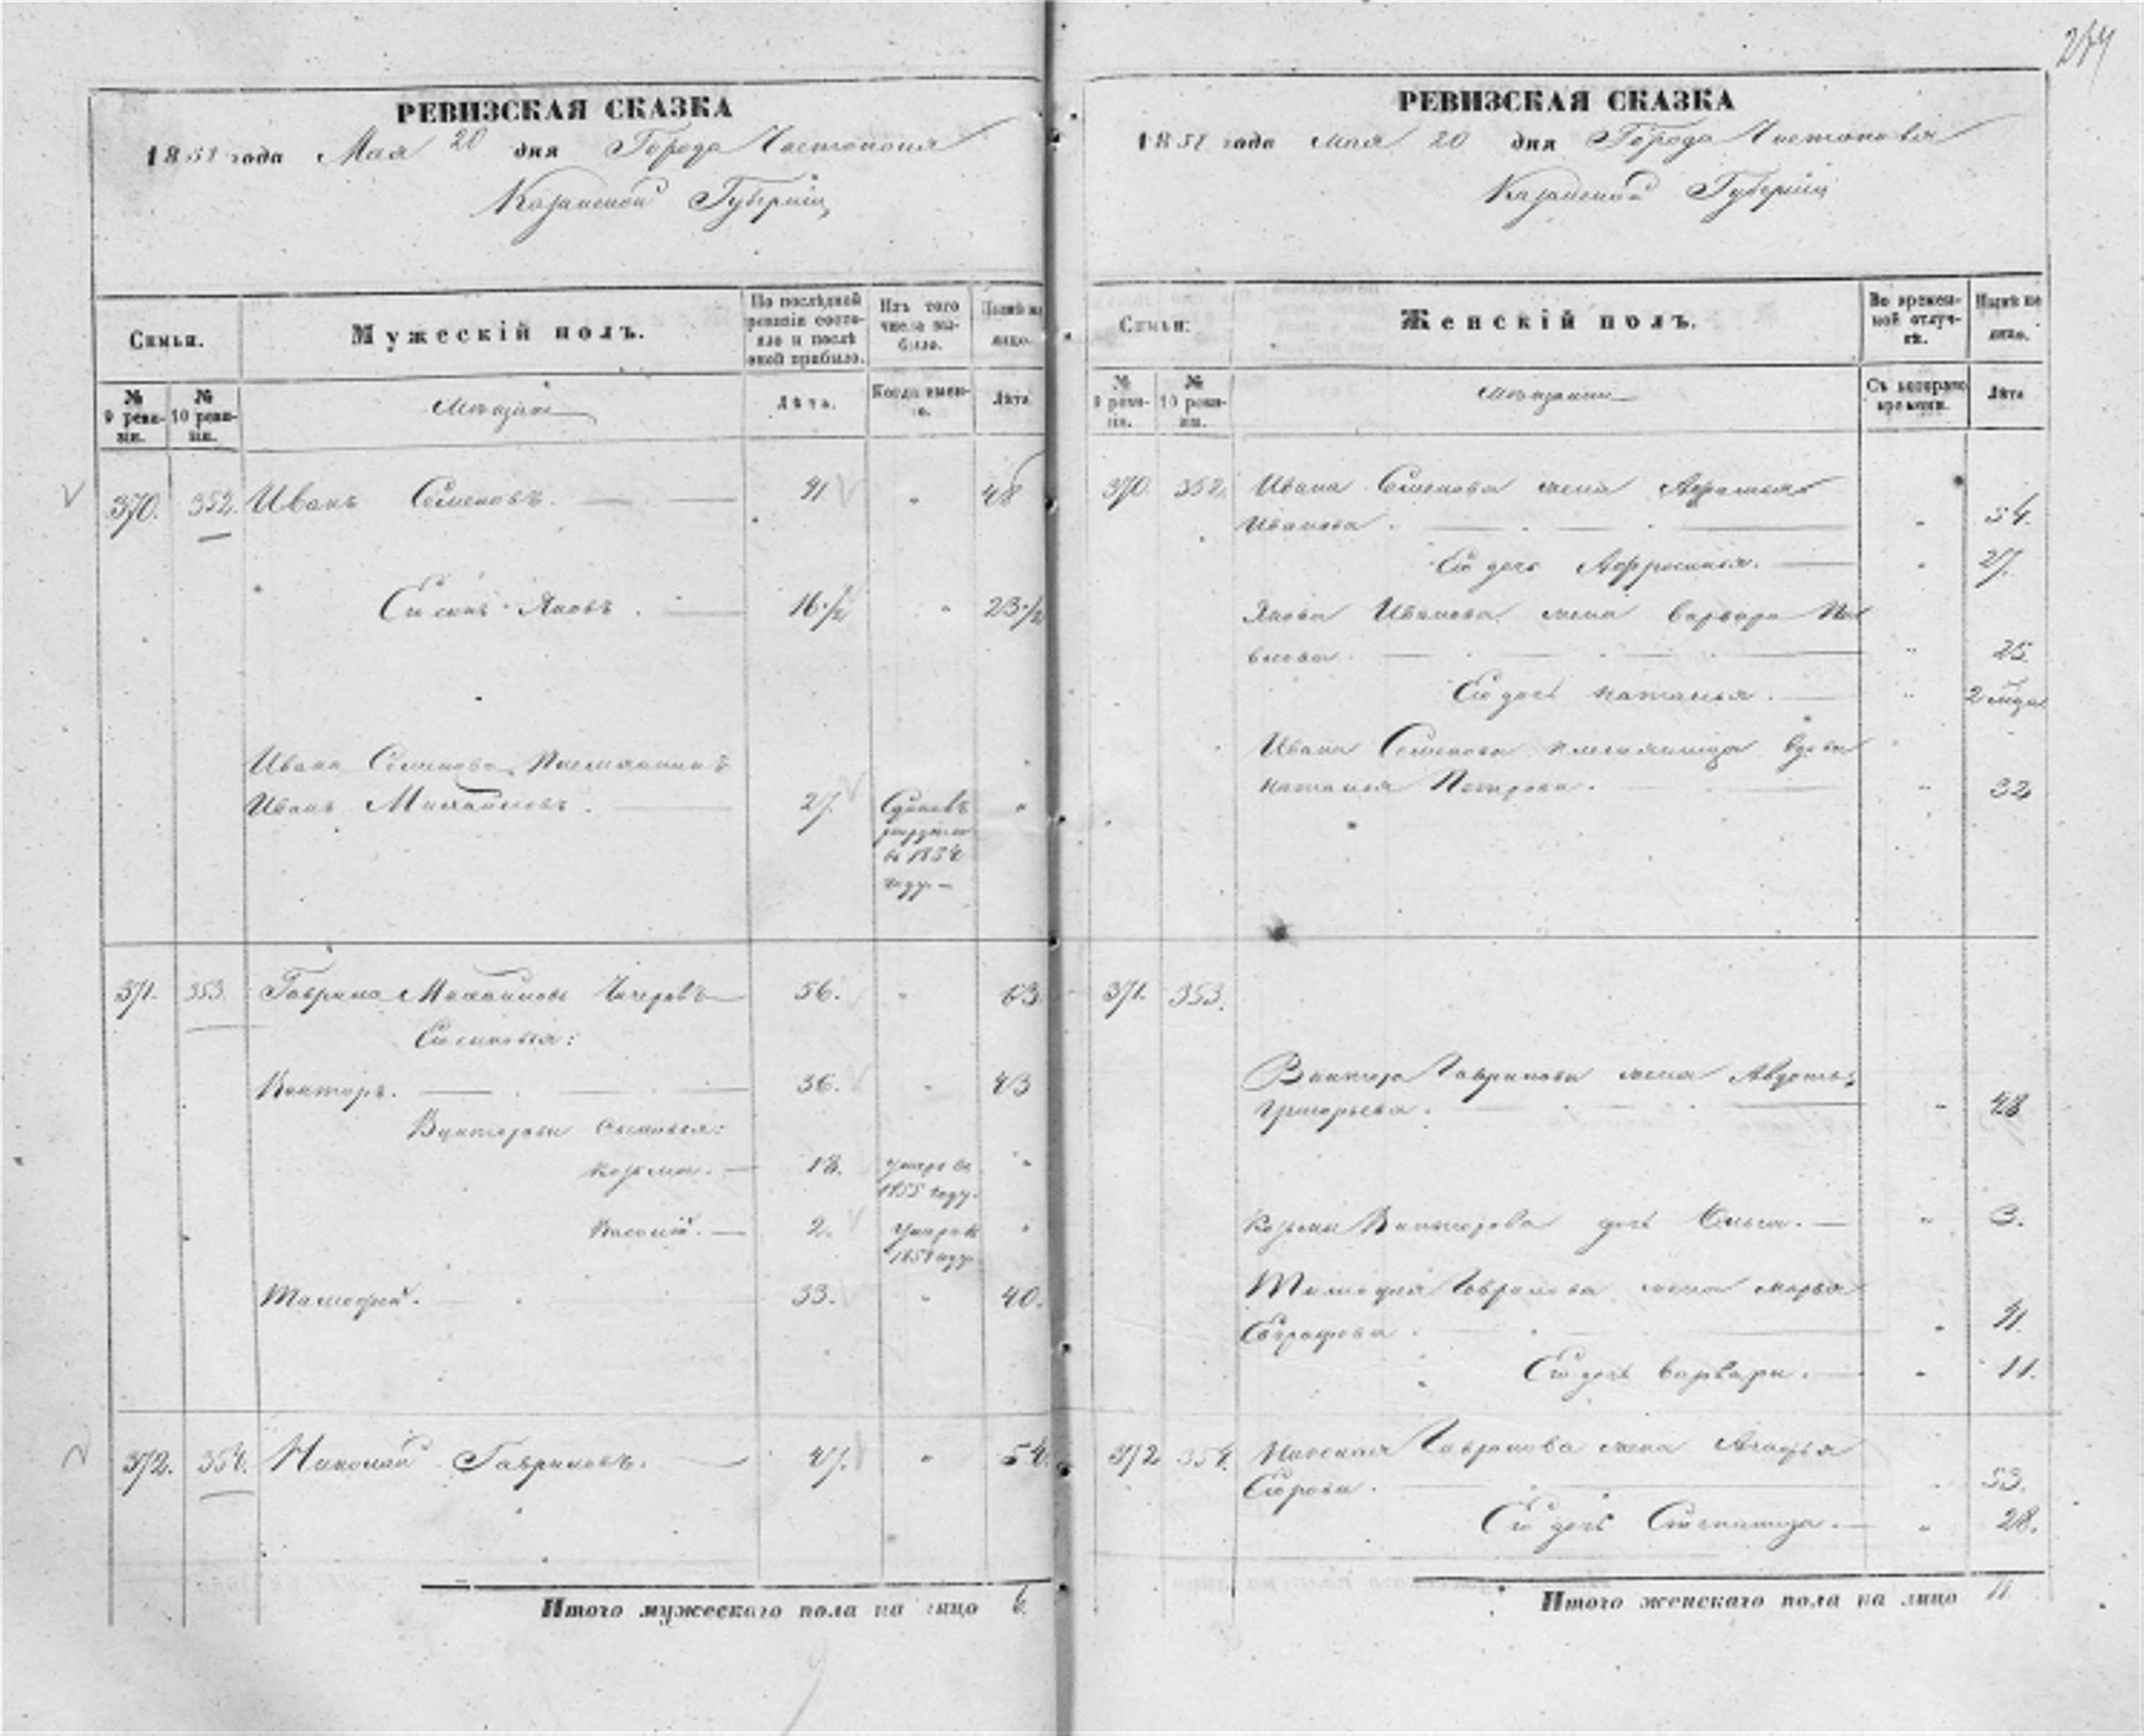 274
РЕВИЗСКАЯ СКАЗКА
1858 года Мая 20 дня Города Чистополя
Казанской Губерніи
Семьи.
Мужескій полъ.
По послѣдней ревизіи состояло и послѣ оной прибыло.
Изъ того числа выбыло.
Нынѣ на лицо.
№ 9 ревизіи.
№ 10 ревизіи.
Мещане
Лѣта.
Когда именно.
Лѣта.
370. 352. Иванъ Семеновъ. 41 " 48
Его сынъ Яковъ. 16 1/2 " 23 1/2
Ивана Семенова Племянникъ
Иванъ Михайловъ. 27. Сданъ въ рекруты въ 1854 году. "
371. 353. Гаврила Михайловъ 56. " 63
Его сыновья:
Викторъ. 36. " 43
Викторовы сыновья:
Козьма. 18. умеръ въ 1855 году. "
Василій. 2. умеръ въ 1851 году "
Тимофей. 33. " 40.
372. 354. Николай Гавриловъ. 47. " 54.
Итого мужескаго пола на лицо 6.
РЕВИЗСКАЯ СКАЗКА
1858 года мая 20 дня Города Чистополя
Казанской Губерніи
Семьи:
Женскій полъ.
Во временной отлучкѣ.
Нынѣ на лицо.
№ 9 ревизіи.
№ 10 ревизіи.
Мещане
Съ котораго времени.
Лѣта
370. 352. Ивана Семенова жена
Иванова. " 54.
Его дочь Афросинья. " 27.
Якова Иванова жена Варвара
" 25.
Его дочь Наталья. " 2 мѣсяца
Ивана Семенова племянница вдова
Наталья Петрова. " 32
371. 353.
Виктора Гаврилова жена Авдотья
Григорьева. " 48
Козьмы Викторова дочь Ольга. " 3.
Тимофея Гаврилова жена Марья
Евграфова. " 41.
Его дочь Варвара. " 11.
372 354. Николая Гаврилова жена Агафья
Егорова. " 53.
Его дочь Степанида. " 28.
Итого женскаго пола на лицо 11